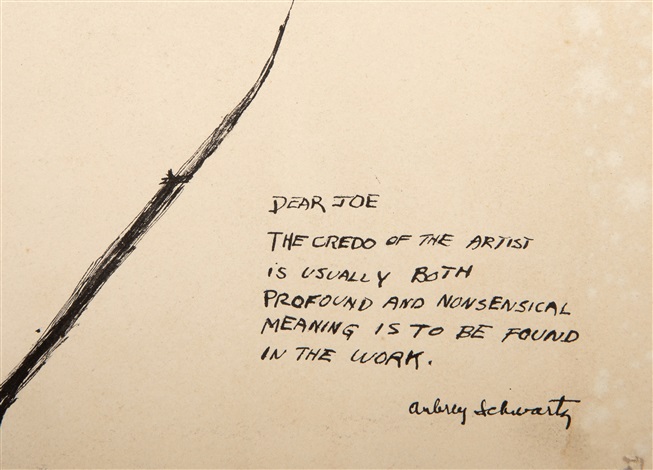 DEAR JOE
THE CREDO OF THE ARTIST
IS USUALLY BOTH
PROFOUND AND NONSENSICAL
MEANING IS TO BE FOUND
IN THE WORK.
Aubrey Schwartz